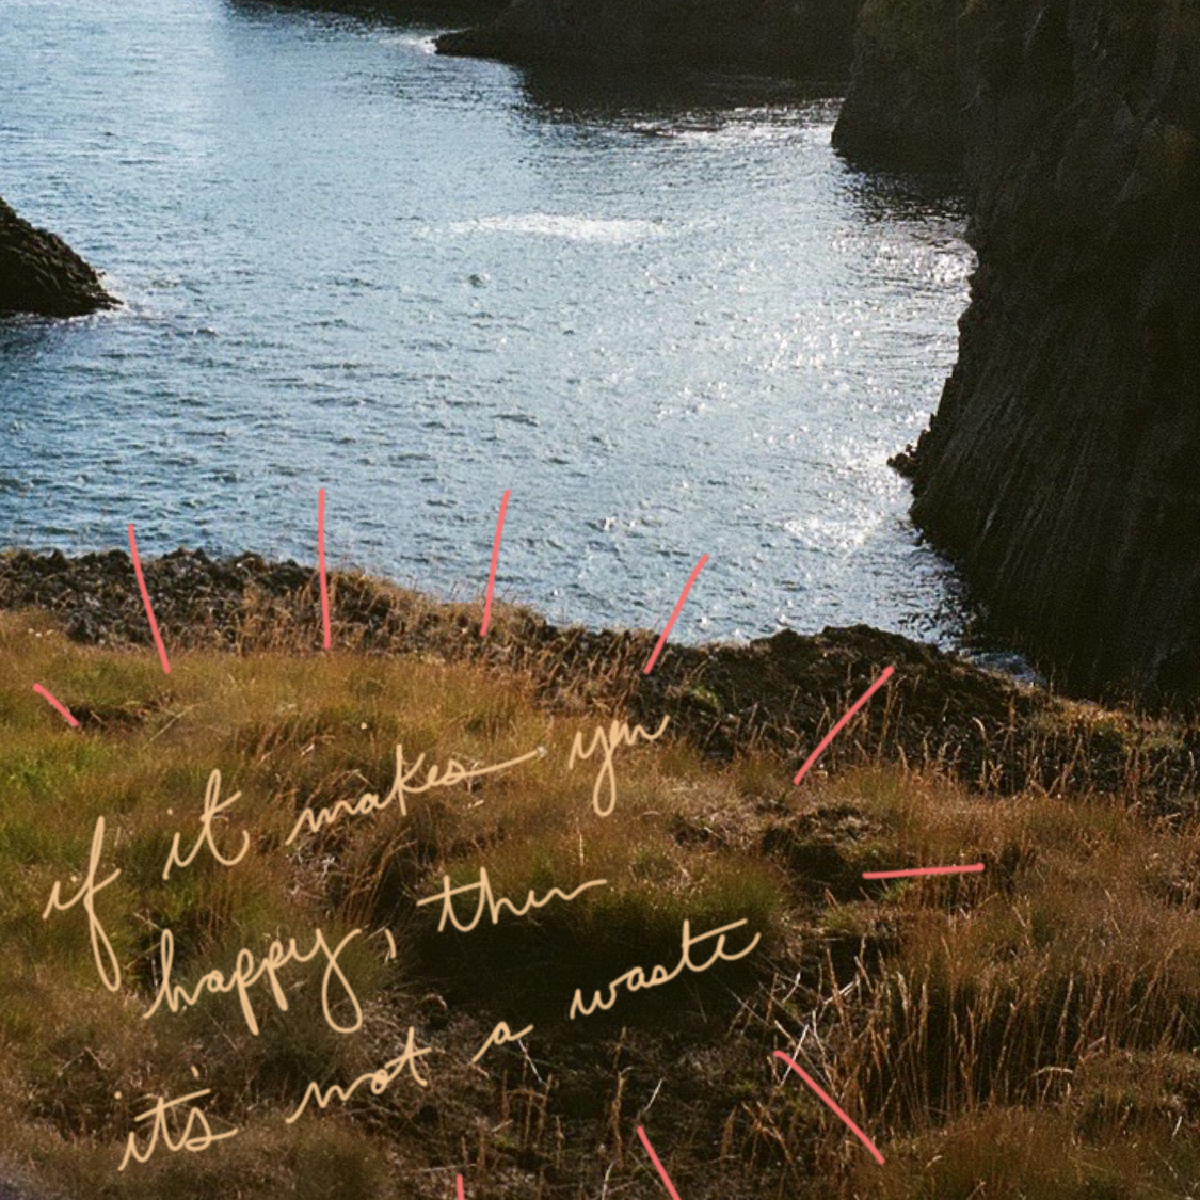 if it makes you
happy, then
it's not a waste